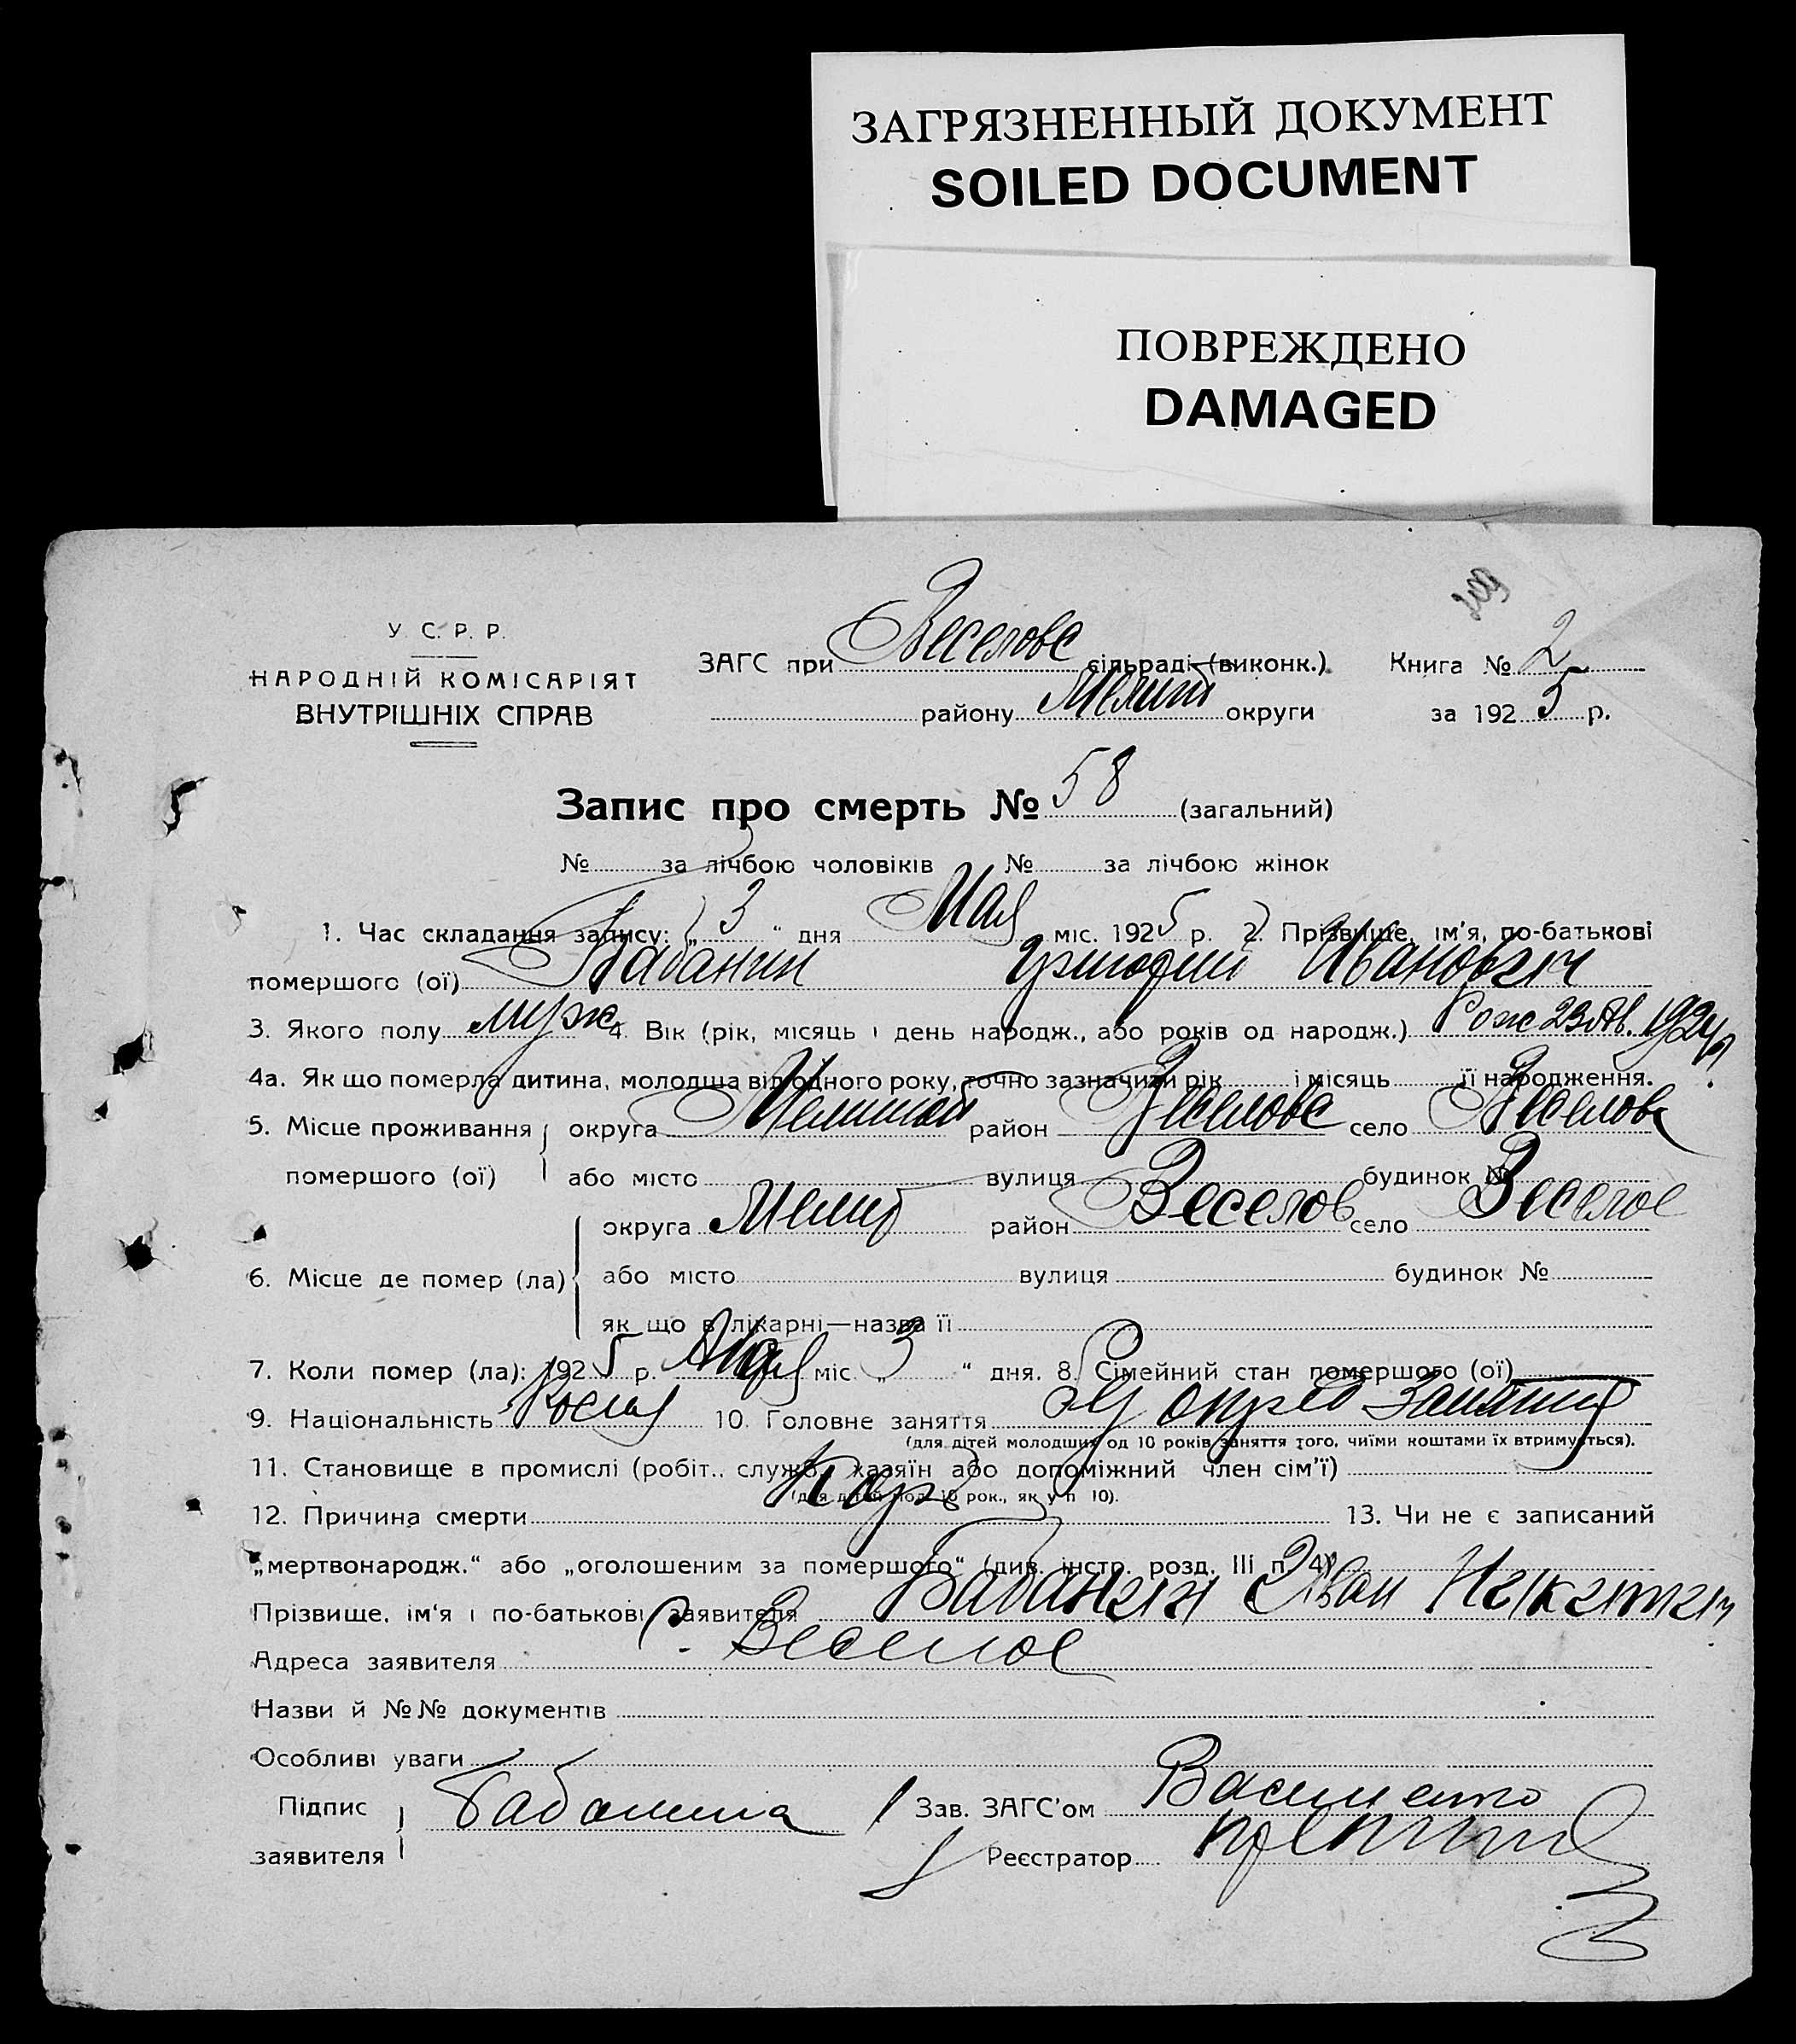 ЗАГРЯЗНЕННЫЙ ДОКУМЕНТ
SOILED DOCUMENT
ПОВРЕЖДЕНО
DAMAGED
У. С. Р. Р.
НАРОДНІЙ КОМІСАРІЯТ
ВНУТРІШНІХ СПРАВ
ЗАГС при Веселовс сільраді (виконк.)
району Мелит округи
Книга № 2
за 1925 р.
Запис про смерть № 58 (загальний)
№ за лічбою чоловіків № за лічбою жінок
1. Час складання запису: „3“ дня Мая міс. 1925 р. 2. Прізвище, ім'я, по-батькові
помершого (ої) Бабанин Григорий Иванович
3. Якого полу муж 4. Вік (рік, місяць і день народж., або років од народж.) Рож 23 1924
4а. Як що померла дитина, молодша від одного року, точно зазначити рік і місяць її народження.
5. Місце проживання округа район Веселовс село
помершого (ої) або місто вулиця будинок №
округа Мелит район Веселов село Веселое
6. Місце де помер (ла) або місто вулиця будинок №
як що в лікарні—назва її
7. Коли помер (ла): 1925 р. Мая міс. „3“ дня. 8. Сімейний стан помершого (ої)
9. Національність 10. Головне заняття
(для дітей молодших од 10 років заняття того, чиїми коштами їх втримується).
11. Становище в промислі (робіт., служб., хазяїн або допоміжний член сім'ї)
(для дітей мол. 10 рок., як у п 10).
12. Причина смерти 13. Чи не є записаний
„мертвонародж.“ або „оголошеним за помершого“ (див. інстр. розд. III п. 4)
Прізвище, ім'я і по-батькові заявителя Бабанин Иван Никитич
Адреса заявителя с. Веселое
Назви й №№ документів
Особливі уваги
Підпис Бабанина Зав. ЗАГС'ом
заявителя Реєстратор